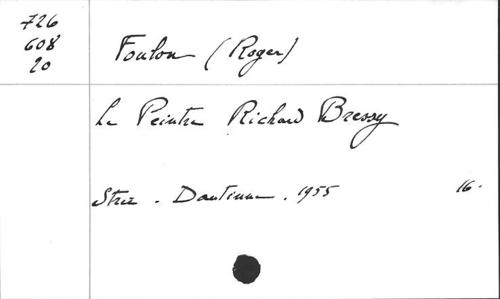 726
608
20
Foulon (Roger)
Le Peintre Richard Bressy
Strée. Dautinne. 1955 16.